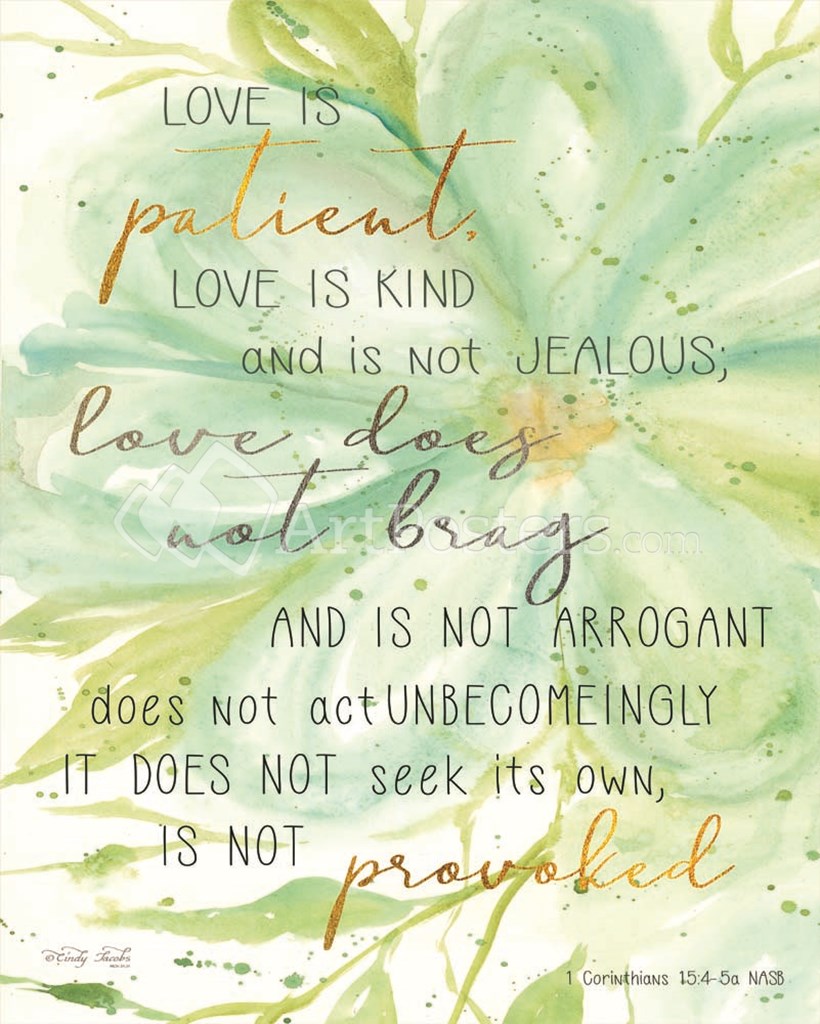 LOVE IS
patient,
LOVE IS KIND
and is not JEALOUS;
love does
not brag
ArtPosters.com
AND IS NOT ARROGANT
does not act UNBECOMEINGLY
IT DOES NOT seek its own,
IS NOT
provoked
©Cindy Jacobs
1 Corinthians 15:4-5a NASB